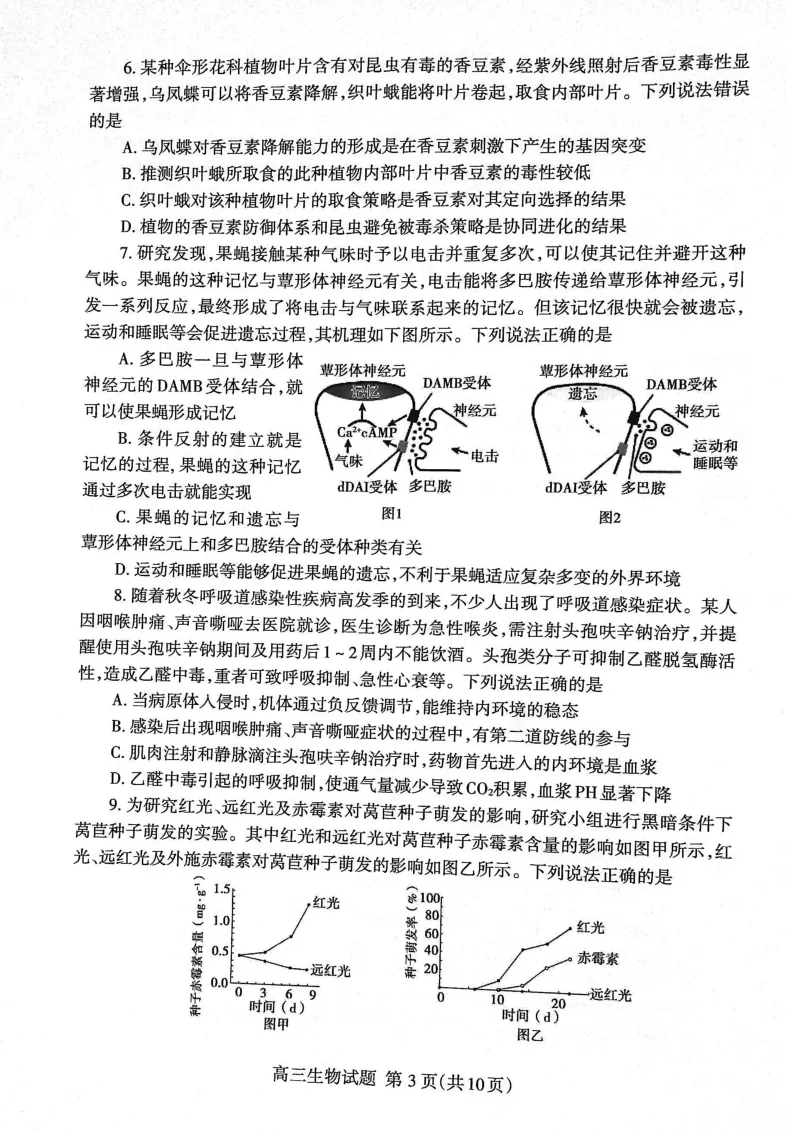 6. 某种伞形花科植物叶片含有对昆虫有毒的香豆素,经紫外线照射后香豆素毒性显
著增强,乌凤蝶可以将香豆素降解,织叶蛾能将叶片卷起,取食内部叶片。下列说法错误
的是
A. 乌凤蝶对香豆素降解能力的形成是在香豆素刺激下产生的基因突变
B. 推测织叶蛾所取食的此种植物内部叶片中香豆素的毒性较低
C. 织叶蛾对该种植物叶片的取食策略是香豆素对其定向选择的结果
D. 植物的香豆素防御体系和昆虫避免被毒杀策略是协同进化的结果
7. 研究发现,果蝇接触某种气味时予以电击并重复多次,可以使其记住并避开这种
气味。果蝇的这种记忆与蕈形体神经元有关,电击能将多巴胺传递给蕈形体神经元,引
发一系列反应,最终形成了将电击与气味联系起来的记忆。但该记忆很快就会被遗忘,
运动和睡眠等会促进遗忘过程,其机理如下图所示。下列说法正确的是
A. 多巴胺一旦与蕈形体
神经元的DAMB受体结合,就
可以使果蝇形成记忆
B. 条件反射的建立就是
记忆的过程,果蝇的这种记忆
通过多次电击就能实现
C. 果蝇的记忆和遗忘与
蕈形体神经元 记忆 DAMB受体 神经元
Ca²⁺cAMP 气味 电击
dDAI受体 多巴胺
图1
蕈形体神经元 遗忘 DAMB受体 神经元
运动和
睡眠等
dDAI受体 多巴胺
图2
蕈形体神经元上和多巴胺结合的受体种类有关
D. 运动和睡眠等能够促进果蝇的遗忘,不利于果蝇适应复杂多变的外界环境
8. 随着秋冬呼吸道感染性疾病高发季的到来,不少人出现了呼吸道感染症状。某人
因咽喉肿痛、声音嘶哑去医院就诊,医生诊断为急性喉炎,需注射头孢呋辛钠治疗,并提
醒使用头孢呋辛钠期间及用药后1~2周内不能饮酒。头孢类分子可抑制乙醛脱氢酶活
性,造成乙醛中毒,重者可致呼吸抑制、急性心衰等。下列说法正确的是
A. 当病原体入侵时,机体通过负反馈调节,能维持内环境的稳态
B. 感染后出现咽喉肿痛、声音嘶哑症状的过程中,有第二道防线的参与
C. 肌肉注射和静脉滴注头孢呋辛钠治疗时,药物首先进入的内环境是血浆
D. 乙醛中毒引起的呼吸抑制,使通气量减少导致CO₂积累,血浆PH显著下降
9. 为研究红光、远红光及赤霉素对莴苣种子萌发的影响,研究小组进行黑暗条件下
莴苣种子萌发的实验。其中红光和远红光对莴苣种子赤霉素含量的影响如图甲所示,红
光、远红光及外施赤霉素对莴苣种子萌发的影响如图乙所示。下列说法正确的是
种子赤霉素含量(mg·g⁻¹)
1.5
1.0
0.5
0.0
红光
远红光
0 3 6 9
时间(d)
图甲
种子萌发率(%)
100
80
60
40
20
红光
赤霉素
远红光
0 10 20
时间(d)
图乙
高三生物试题 第3页(共10页)